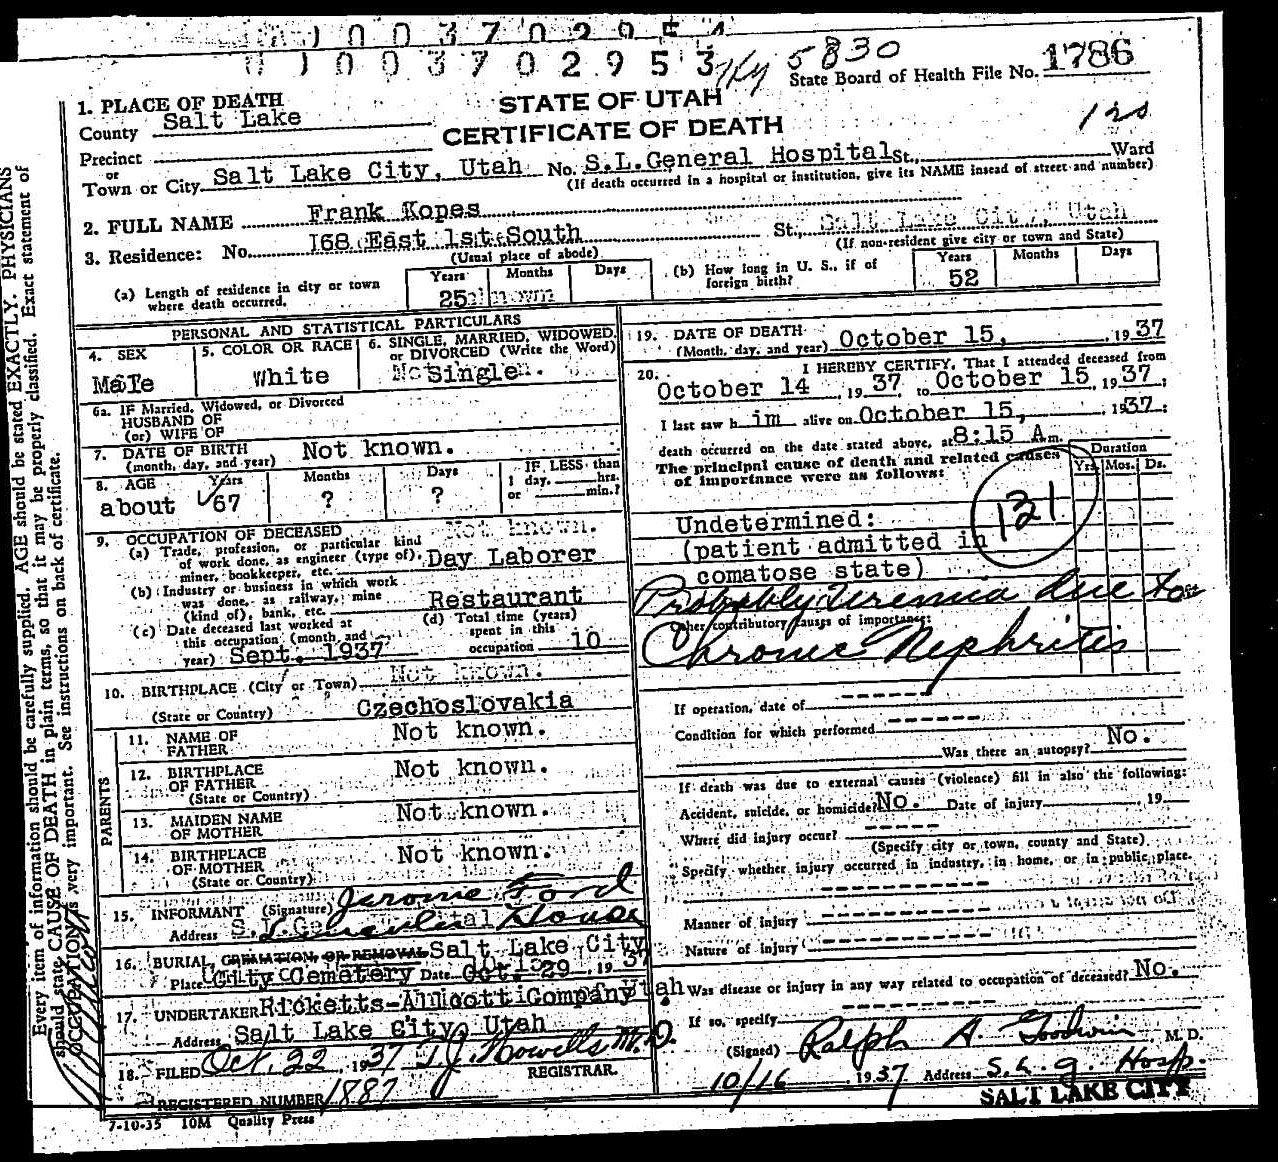 J 0 0 3 7 0 2 9 5 4
J 0 0 3 7 0 2 9 5 3
5830
State Board of Health File No. 1786
STATE OF UTAH
CERTIFICATE OF DEATH
1. PLACE OF DEATH
County Salt Lake
Precinct
or
Town or City Salt Lake City, Utah No. S.L.General Hospital St., Ward
(If death occurred in a hospital or institution, give its NAME insead of street and number)
2. FULL NAME Frank Kopes
3. Residence: No. 168 East 1st South St., Salt Lake City, Utah
(Usual place of abode) (If non-resident give city or town and State)
(a) Length of residence in city or town where death occurred. Years 25 Months Days
(b) How long in U. S., if of foreign birth? Years 52 Months Days
PERSONAL AND STATISTICAL PARTICULARS
4. SEX Male
5. COLOR OR RACE White
6. SINGLE, MARRIED, WIDOWED, or DIVORCED (Write the Word) Single
6a. IF Married, Widowed, or Divorced
HUSBAND OF
(or) WIFE OF
7. DATE OF BIRTH (month, day, and year) Not known.
8. AGE about Years 67 Months ? Days ? IF LESS than 1 day, hrs. or min.?
9. OCCUPATION OF DECEASED Not known.
(a) Trade, profession, or particular kind of work done, as engineer (type of), miner, bookkeeper, etc. Day Laborer
(b) Industry or business in which work was done, as railway, mine (kind of), bank, etc. Restaurant
(c) Date deceased last worked at this occupation (month and year) Sept. 1937
(d) Total time (years) spent in this occupation 10
10. BIRTHPLACE (City or Town) Not known.
(State or Country) Czechoslovakia
PARENTS
11. NAME OF FATHER Not known.
12. BIRTHPLACE OF FATHER (State or Country) Not known.
13. MAIDEN NAME OF MOTHER Not known.
14. BIRTHPLACE OF MOTHER (State or Country) Not known.
15. INFORMANT (Signature) Jerome Ford
Address
16. BURIAL, CREMATION, OR REMOVAL Salt Lake City
Place City Cemetery Date Oct. 29, 1937
17. UNDERTAKER Ricketts-Allcott Company
Address Salt Lake City, Utah
18. FILED Oct, 22, 1937 T.J. Howells M.D.
REGISTRAR.
REGISTERED NUMBER 1887
7-10-35 10M Quality Press
19. DATE OF DEATH (Month, day, and year) October 15, 1937
20. I HEREBY CERTIFY, That I attended deceased from
October 14, 1937, to October 15, 1937;
I last saw h im alive on October 15, 1937;
death occurred on the date stated above, at 8:15 A m.
The principal cause of death and related causes of importance were as follows:
Duration
Yrs. Mos. Ds.
121
Undetermined:
(patient admitted in
comatose state)
Probably Uremia due to
Other contributory causes of importance:
Chronic Nephritis
If operation, date of
Condition for which performed
Was there an autopsy? No.
If death was due to external causes (violence) fill in also the following:
Accident, suicide, or homicide? No. Date of injury , 19
Where did injury occur?
(Specify city or town, county and State)
Specify whether injury occurred in industry, in home, or in public place.
Manner of injury
Nature of injury
Was disease or injury in any way related to occupation of deceased? No.
If so, specify
(Signed) Ralph A. Goodwin, M. D.
10/16, 1937 Address S. L. G. Hosp.
SALT LAKE CITY
Every item of information should be carefully supplied. AGE should be stated EXACTLY. PHYSICIANS
should state CAUSE OF DEATH in plain terms, so that it may be properly classified. Exact statement of
OCCUPATION is very important. See instructions on back of certificate.